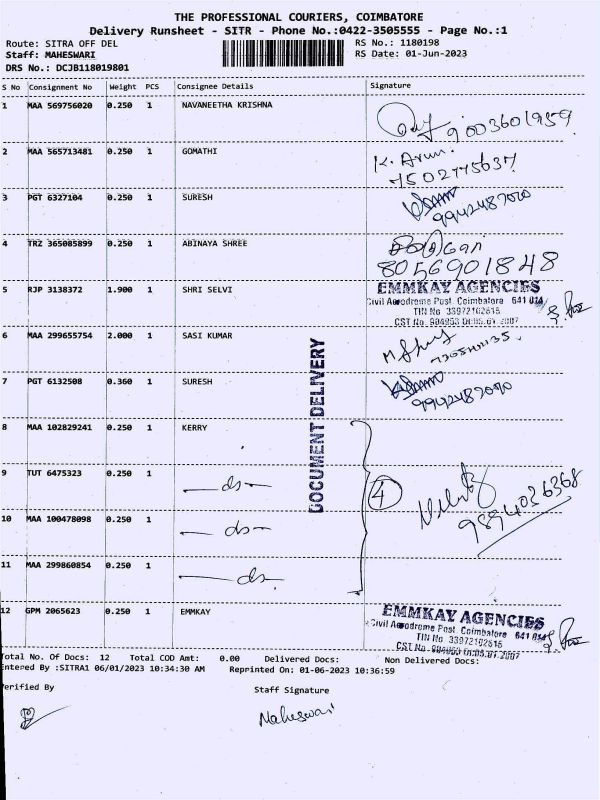 THE PROFESSIONAL COURIERS, COIMBATORE
Delivery Runsheet - SITR - Phone No.:0422-3505555 - Page No.:1
Route: SITRA OFF DEL RS No.: 1180198
Staff: MAHESWARI RS Date: 01-Jun-2023
DRS No.: DCJB118019801
S No Consignment No Weight PCS Consignee Details Signature
1 MAA 569756020 0.250 1 NAVANEETHA KRISHNA
9003601959
2 MAA 565713481 0.250 1 GOMATHI K. Arun.
7502775637
3 PGT 6327104 0.250 1 SURESH
9942487090
4 TRZ 365085899 0.250 1 ABINAYA SHREE
8056901848
5 RJP 3138372 1.900 1 SHRI SELVI EMMKAY AGENCIES
Civil Aerodrome Post. Coimbatore 641 014
TIN No 33972162615
CST No. 904953 Dt:05.01.2007
6 MAA 299655754 2.000 1 SASI KUMAR
7 PGT 6132508 0.360 1 SURESH
9942487090
DOCUMENT DELIVERY
8 MAA 102829241 0.250 1 KERRY
9 TUT 6475323 0.250 1 -do-
4
9894036368
10 MAA 100478098 0.250 1 -do-
11 MAA 299860854 0.250 1 -do-
12 GPM 2065623 0.250 1 EMMKAY EMMKAY AGENCIES
Civil Aerodrome Post. Coimbatore 641 014
TIN No 33972162615
CST No. 904953 Dt:05.01.2007
Total No. Of Docs: 12 Total COD Amt: 0.00 Delivered Docs: Non Delivered Docs:
Entered By :SITRA1 06/01/2023 10:34:30 AM Reprinted On: 01-06-2023 10:36:59
Verified By Staff Signature
Maheswari